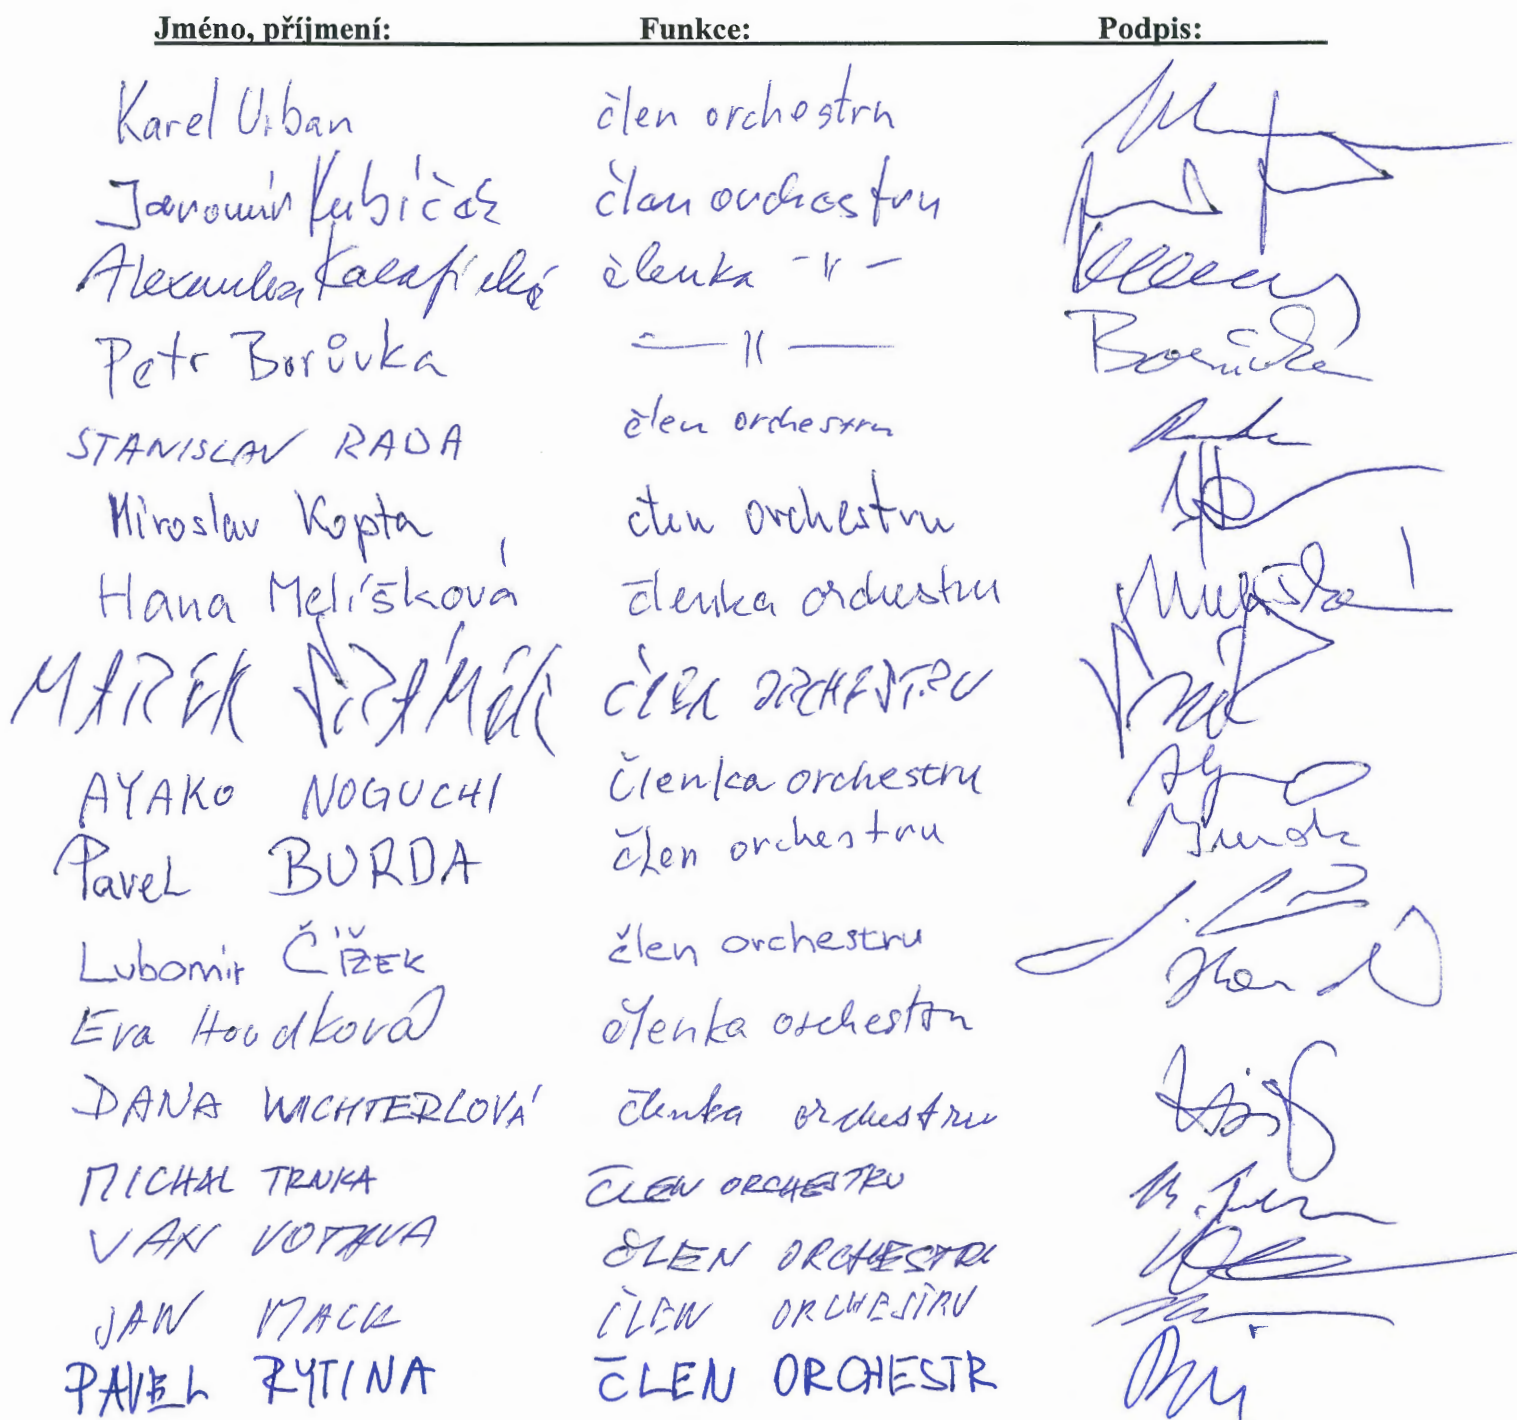 Jméno, příjmení: Funkce: Podpis:
Karel Urban člen orchestru
Jaromír Kubíček člen orchestru
Alexandra členka -||-
Petr Borůvka —||— Borůvka
STANISLAV RADA člen orchestru Rada
Miroslav Kopta člen orchestru
Hana Melíšková členka orchestru
MAREK ŠRÁMEK ČLEN ORCHESTRU
AYAKO NOGUCHI členka orchestru
Pavel BURDA člen orchestru
Lubomír ČÍŽEK člen orchestru
Eva Houdková členka orchestru
DANA WICHTERLOVÁ členka orchestru
MICHAL TRNKA ČLEN ORCHESTRU
VOTAVA ČLEN ORCHESTRU
JAN MACK ČLEN ORCHESTRU
PAVEL RYTINA ČLEN ORCHESTR